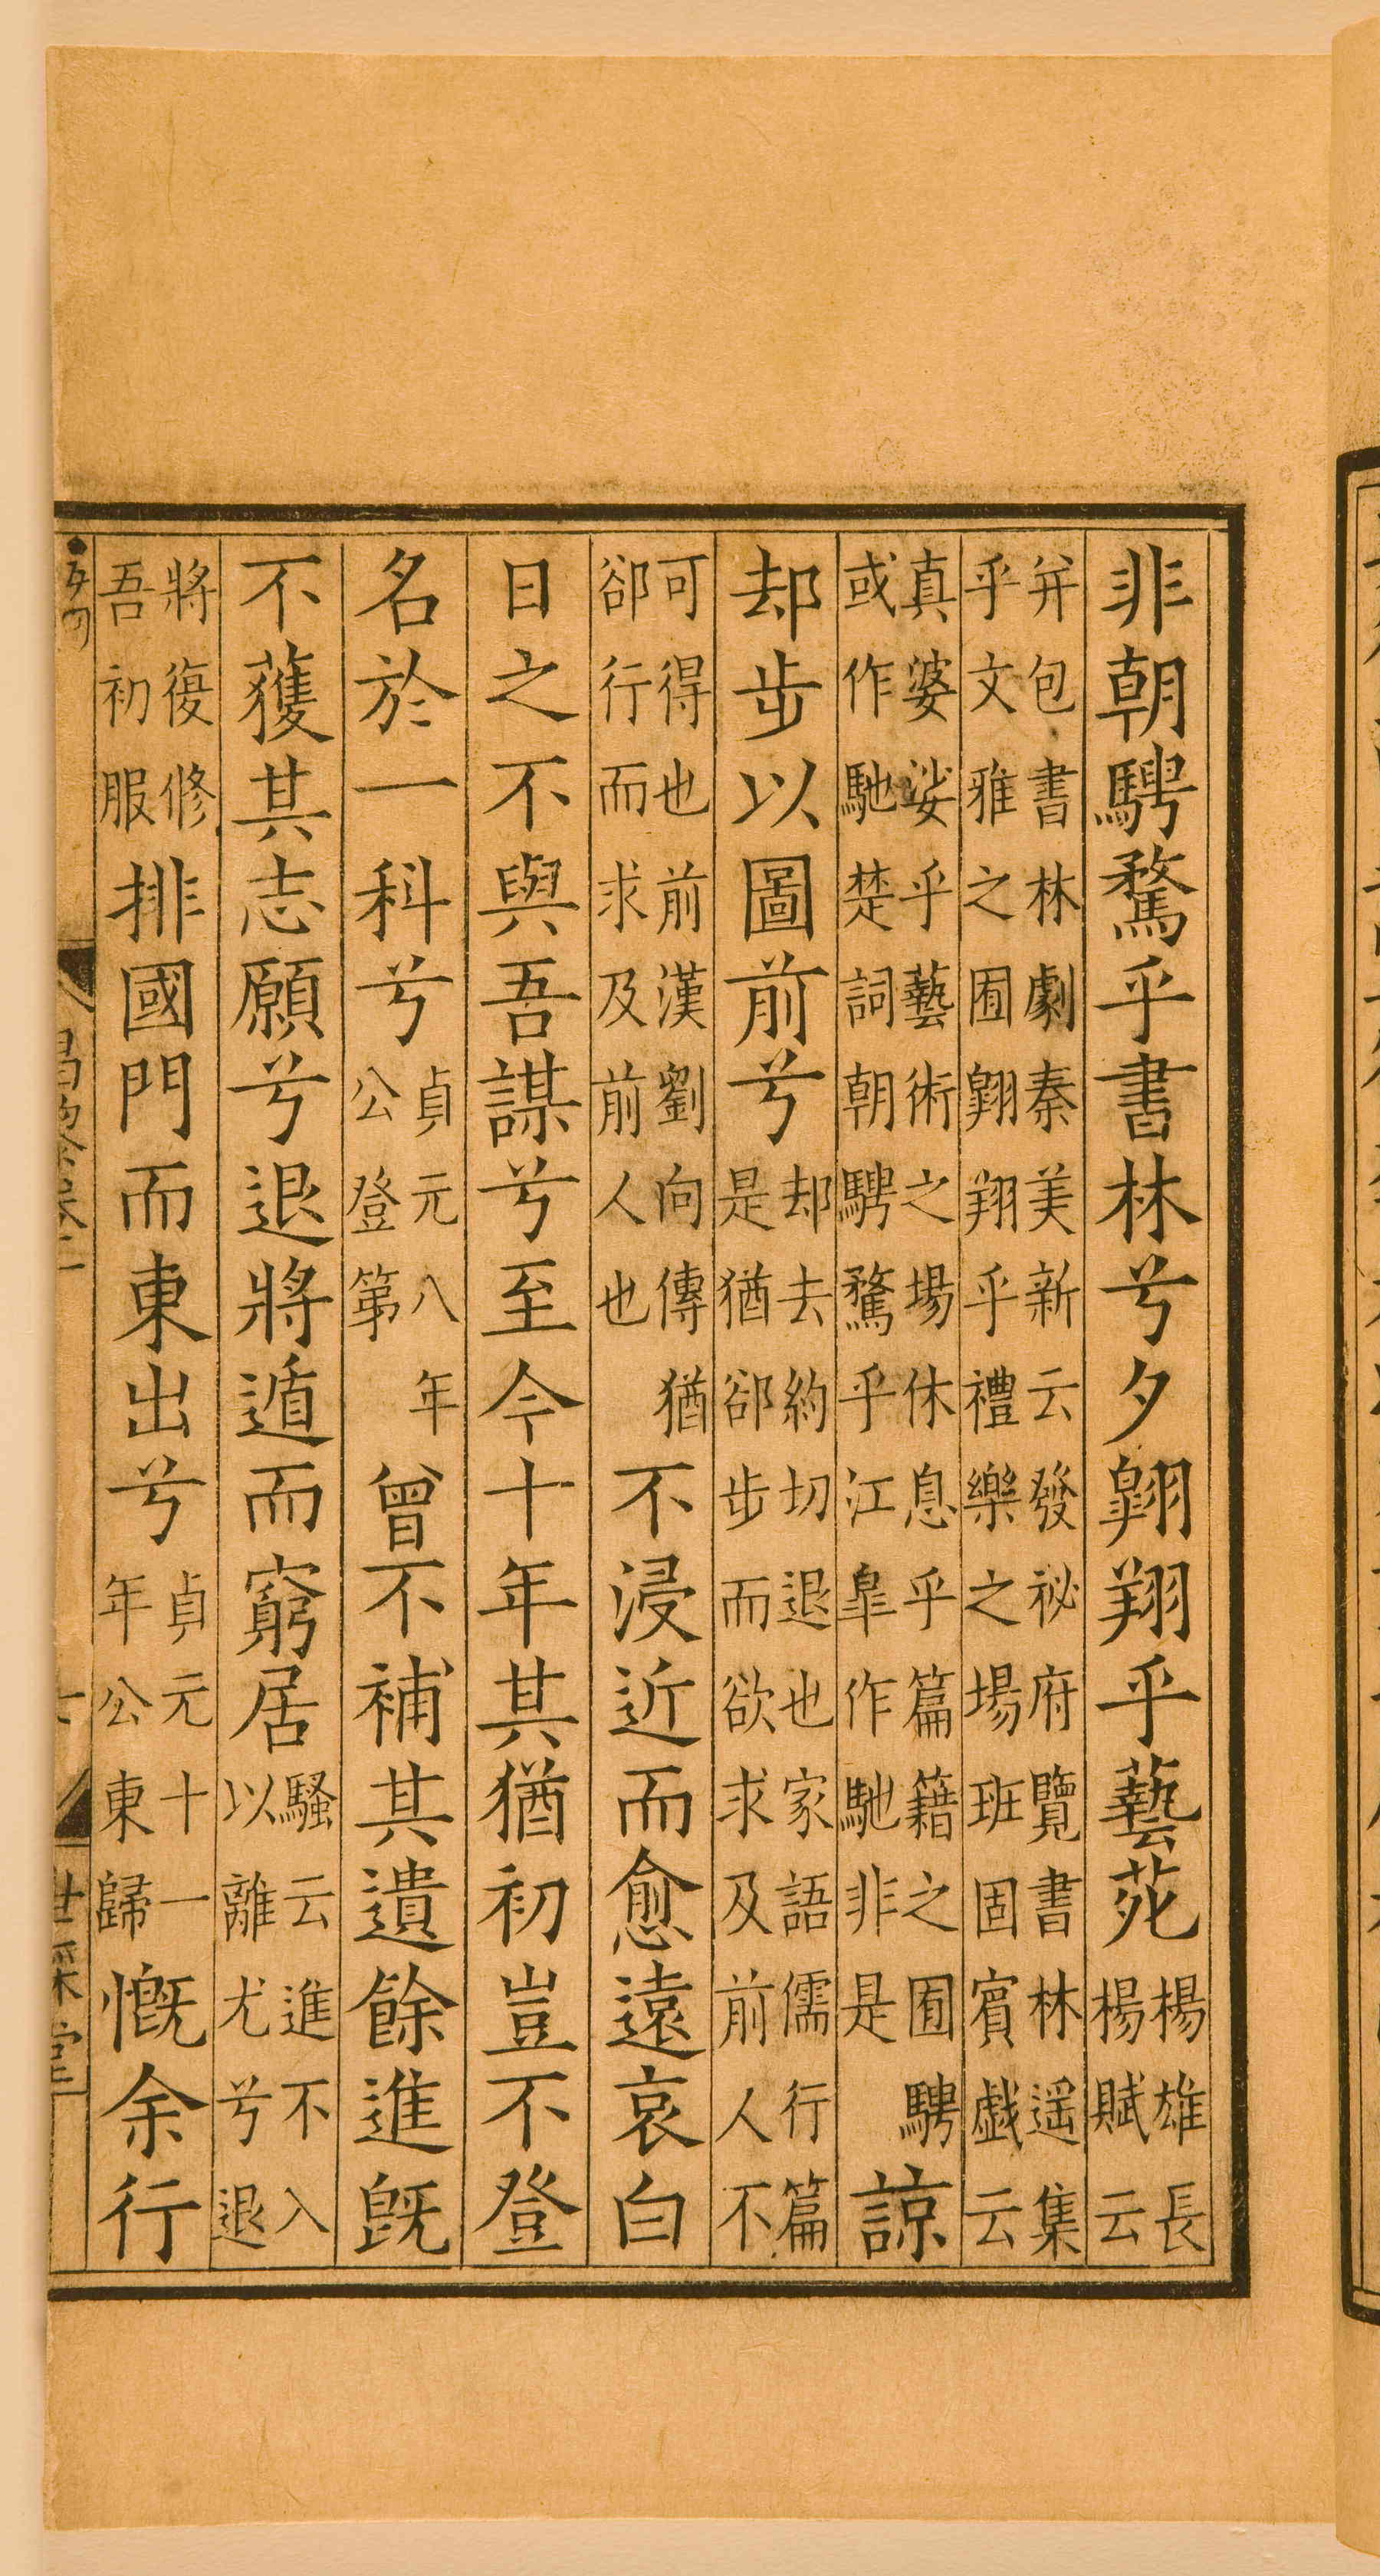 非朝騁騖乎書林兮夕翺翔乎藝苑楊雄長楊賦云
并包書林劇秦美新云發祕府覽書林遥集乎文雅之囿翺翔乎禮樂之場班固賓戲云
真婆娑乎藝術之場休息乎篇籍之囿騁或作馳楚詞朝騁騖乎江臯作馳非是諒
却步以圖前兮却去約切退也家語儒行篇是猶郤步而欲求及前人不
可得也前漢劉向傳猶郤行而求及前人也不浸近而愈遠哀白
日之不與吾謀兮至今十年其猶初豈不登
名於一科兮貞元八年公登第曾不補其遺餘進旣
不獲其志願兮退將遁而窮居騷云進不入以離尤兮退
將復修吾初服排國門而東出兮貞元十一年公東歸慨余行
世綵堂